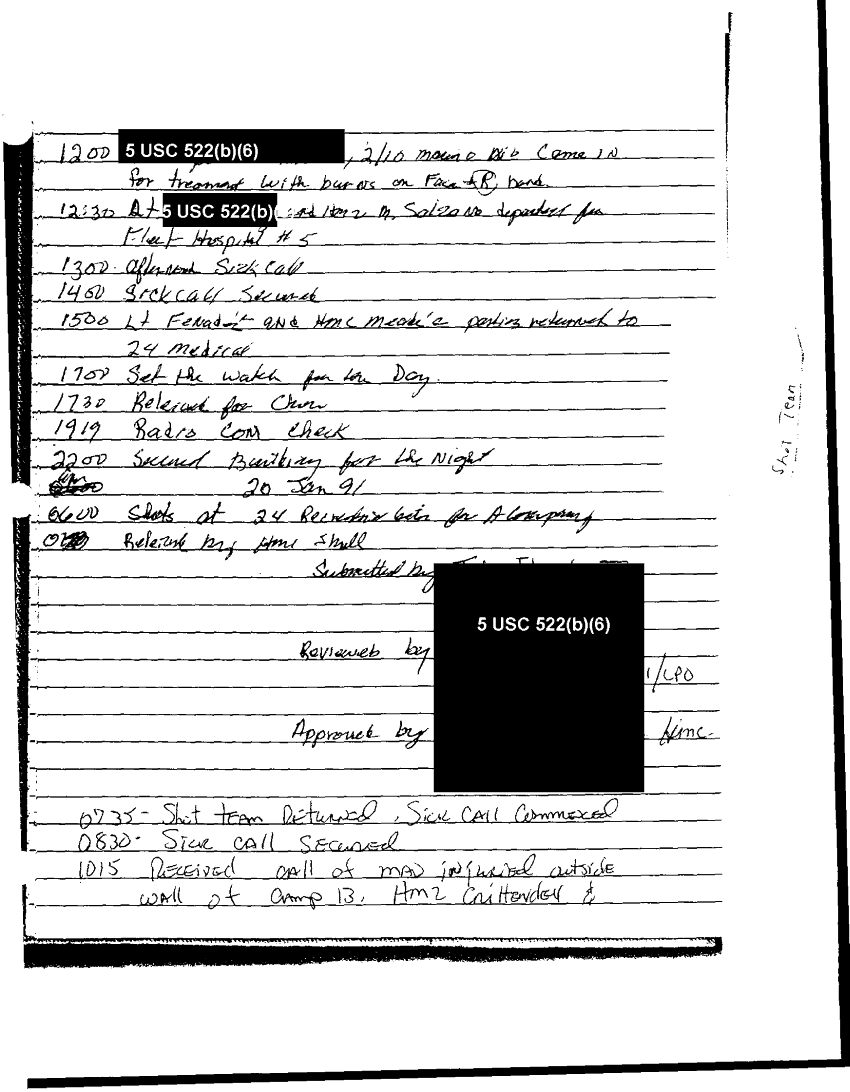 1200 5 USC 522(b)(6) , 2/10 Came IN
for treament with burns on Face + R hand.
12:30 5 USC 522(b)( and Hm2 M. Solzano departed for
Fleet Hospital # 5
1300 afternoon Sick Call
1400 Sick call Secured
1500 Lt and Hmc parties returned to
24 medical
1700 Set the watch for the Day.
1730 Released for Chow
1919 Radio Com Check
2200 Secured for the Night
20 Jan 91
0600 Shots at 24 for A Company
by Hmc Shull
Submitted by
5 USC 522(b)(6)
Reviewed by
/LPO
Approved by Hmc.
0735- Shot team Returned, Sick Call Commenced
0830- Sick call Secured
1015 Received call of man injuried outside
wall of Camp 13. Hm2 Crittenden &
Shot Team